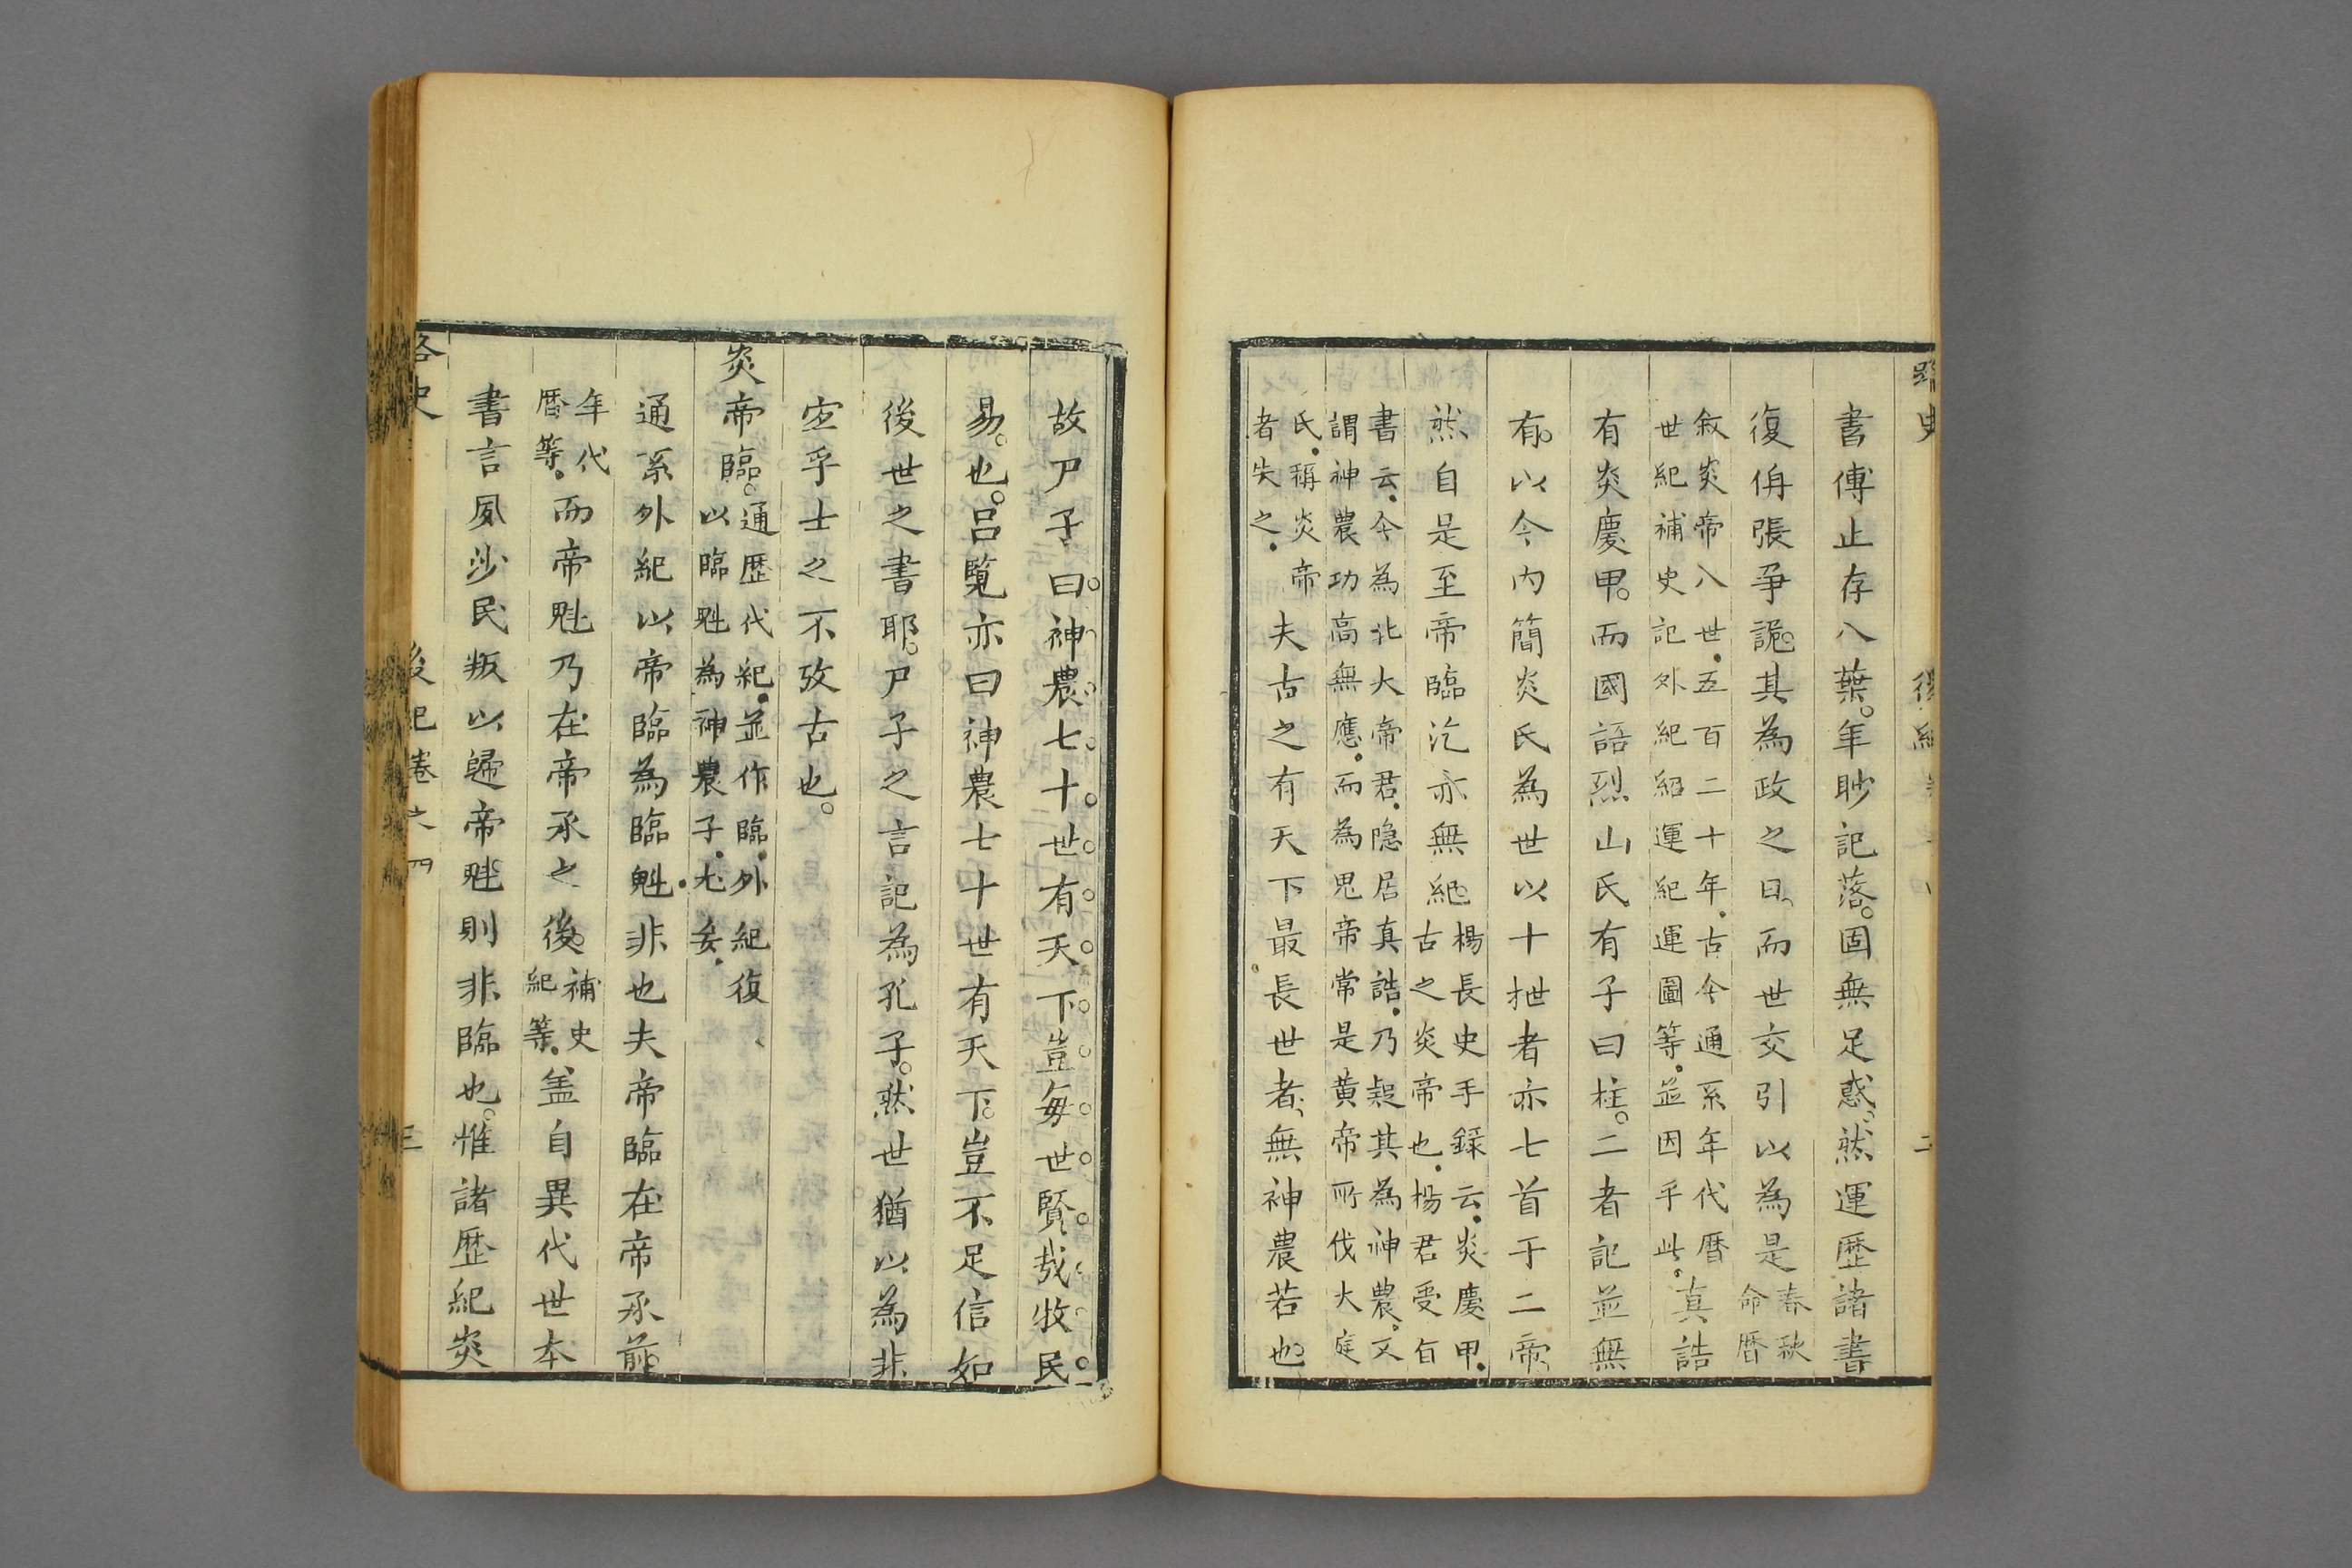 書傅止存八葉。年眇記落。固無足惑、然運歷諸書
復侜張爭詭。其為政之日、而世交引以為是春秋命暦
敘炎帝八世.五百二十年.古今通系年代暦
世紀補史記外紀紹運紀運圖等.並因乎此.真誥
有炎慶甲。而國語烈山氏有子曰柱。二者記並無
有。以今內簡炎氏為世以十抴者亦七首于二帝、
然自是至帝臨汔亦無紀。楊長史手錄云.炎慶甲.古之炎帝也.楊君受旨
書云.今為北大帝君.隐居真誥.乃疑其為神農.又
謂神農功高無應.而為鬼帝常是黄帝所伐大庭
氏.稱炎帝者失之.夫古之有天下最長世者、無神農若也。
故尸子曰神農七十世有天下豈每世賢哉牧民
易。也。吕覽亦曰神農七十世有天下。豈不足信如
後世之書耶。尸子之言記為孔子。然世猶以為非
宐乎士之不攷古也。
炎帝臨。通歷代紀.並作臨.外紀復以臨魁為神農子.尤妄.
通系外紀以帝臨為臨魁.非也夫帝臨在帝承前。
年代暦等.而帝魁乃在帝承之後。補史紀等.盖自異代世本
書言夙沙民叛以歸帝魁則非臨也。惟諸歷紀炎
後紀卷之四
三